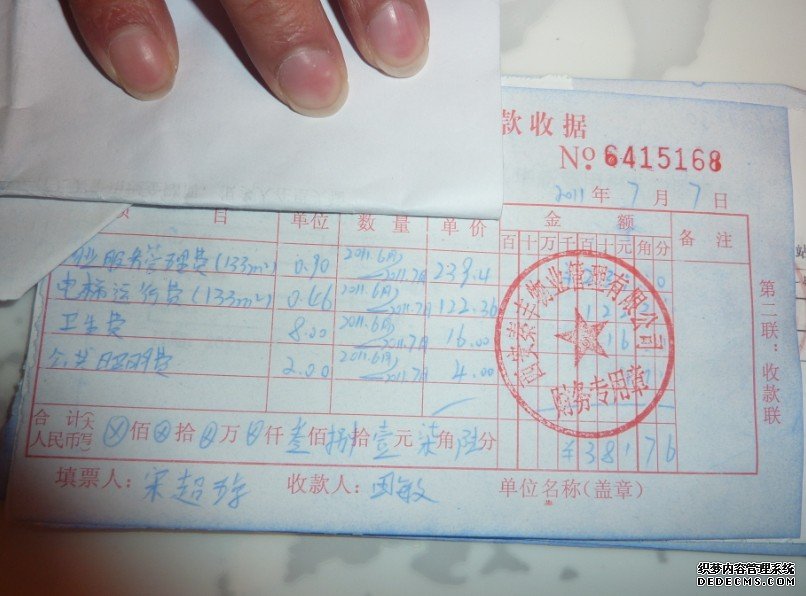 款收据
No. 6415168
2011年7月7日
项 目 单位 数量 单价 金额 备注
百十万千百十元角分
业服务管理费(133m²) 0.90 2011.6月/2011.7月 239.4
电梯运行费(133m²) 0.46 2011.6月/2011.7月 122.36
卫生费 8.00 2011.6月/2011.7月 16.00
公共照明费 2.00 2011.6月/2011.7月 4.00
物业管理有限公司
财务专用章
合计(大写)人民币 佰 拾 万 仟叁佰捌拾壹元柒角陆分 ¥38176
填票人: 宋超 收款人: 田敏 单位名称(盖章)
第二联:收款联
站
织梦内容管理系统
DEDECMS.COM